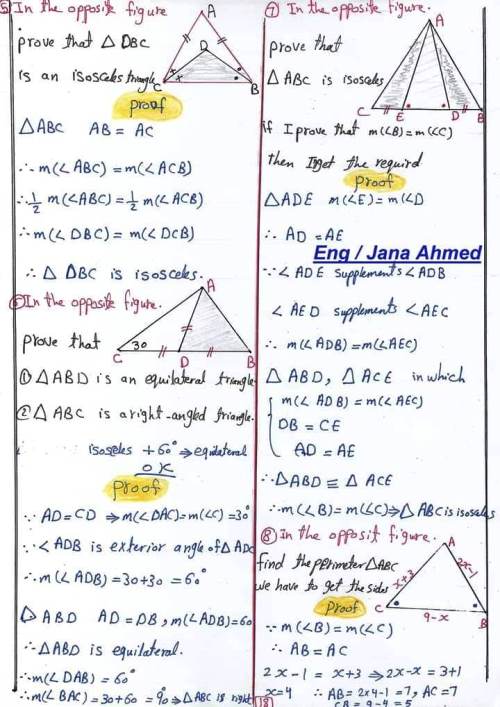 ⑤ In the opposite figure
prove that △ DBC
is an isosceles triangle
A
D
C
B
proof
△ABC AB = AC
∴ m(∠ABC) = m(∠ACB)
∴ 1/2 m(∠ABC) = 1/2 m(∠ACB)
∴ m(∠DBC) = m(∠DCB)
∴ △ DBC is isosceles.
⑥ In the opposite figure.
prove that
A
30
C
D
B
① △ABD is an equilateral triangle
② △ ABC is a right-angled triangle.
isosceles + 60° ⇒ equilateral
OK
proof
∵ AD = CD ⇒ m(∠DAC) = m(∠C) = 30°
∵ ∠ADB is exterior angle of △ ADC
∴ m(∠ADB) = 30+30 = 60°
△ ABD AD = DB, m(∠ADB)=60
∴ △ABD is equilateral.
∴ m(∠DAB) = 60°
∴ m(∠BAC) = 30+60 = 90° ⇒ △ABC is right
⑦ In the opposite figure.
prove that
△ ABC is isosceles
A
C
E
D
B
if I prove that m(∠B) = m(∠C)
then I get the requird
proof
△ADE m(∠E) = m(∠D
∴ AD = AE
Eng / Jana Ahmed
∵ ∠ADE supplements ∠ADB
∠AED supplements ∠AEC
∴ m(∠ADB) = m(∠AEC)
△ ABD, △ ACE in which
m(∠ADB) = m(∠AEC)
DB = CE
AD = AE
∴ △ABD ≡ △ ACE
∴ m(∠B) = m(∠C) ⇒ △ABC is isosceles
⑧ In the opposit figure.
find the perimeter △ABC
we have to get the sides
A
x+3
2x-1
C
9-x
B
Proof
∵ m(∠B) = m(∠C)
∴ AB = AC
2x-1 = x+3 ⇒ 2x-x = 3+1
x=4 ∴ AB = 2×4-1 = 7, AC = 7
CB = 9-4 = 5
18